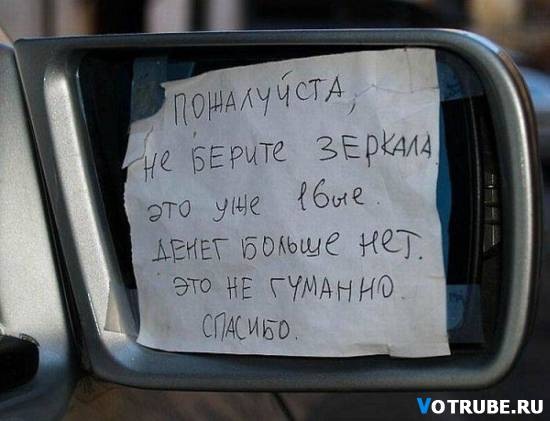 ПОЖАЛУЙСТА,
НЕ БЕРИТЕ ЗЕРКАЛА
ЭТО УЖЕ 16ые.
ДЕНЕГ БОЛЬШЕ НЕТ.
ЭТО НЕ ГУМАННО
СПАСИБО.
VOTRUBE.RU